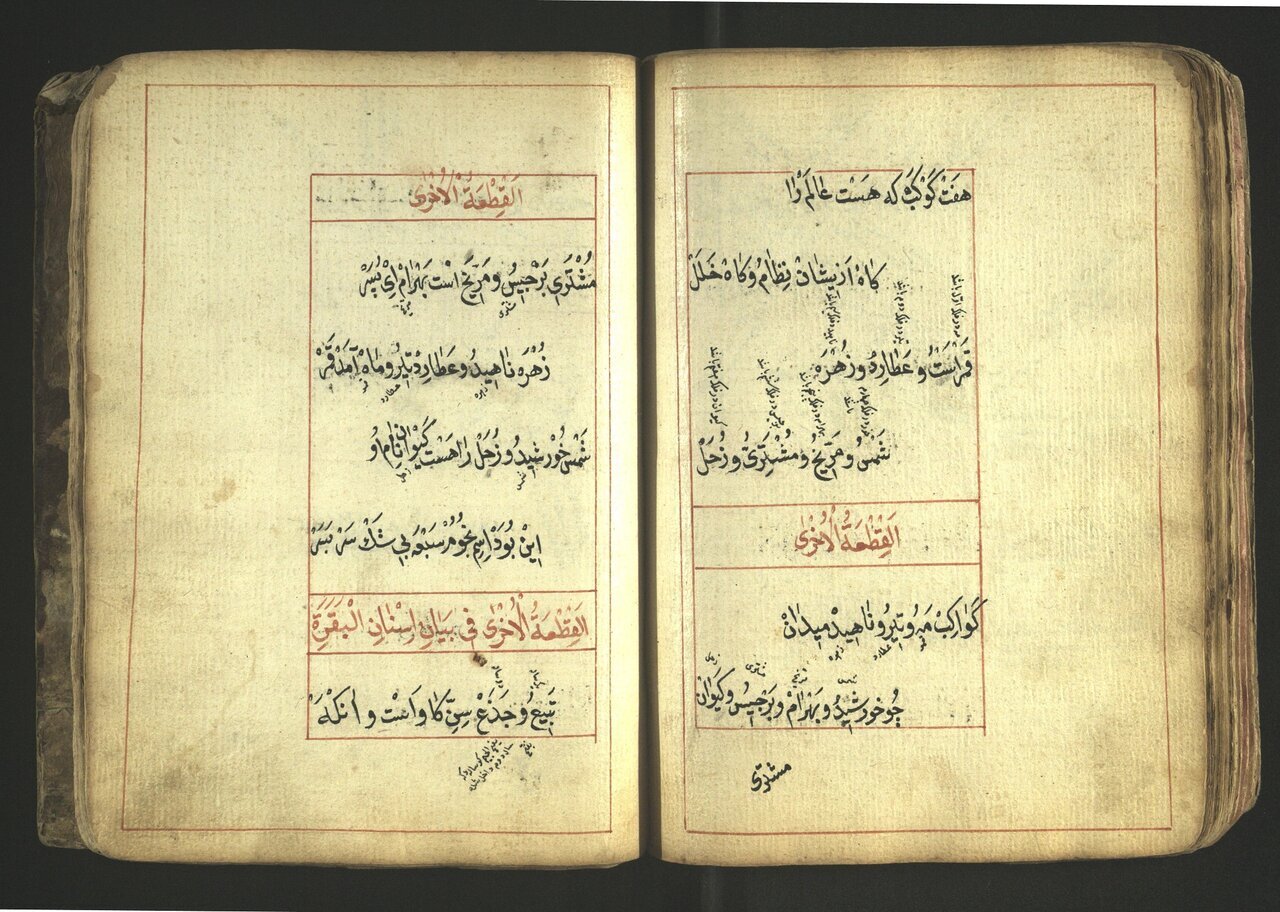 هفت کوکب که هست عالم را
کاه ازیشان نظام و کاه خلل
قمر است و عطارد و زهره
شمس و مریخ و مشتری و زحل
القطعة الاخری
کواکب مه و تیر و ناهید میدان
قمر عطارد زهره
شمس مریخ مشتری زحل
چو خورشید و بهرام و برجیس و کیوان
مشتری
القطعة الاخری
مشتری برجیس و مریخ است بهرام ای پسر
مشتری مریخ
زهره ناهید و عطارد تیر و ماه آمد قمر
زهره عطارد قمر
شمس خورشید و زحل را هست کیوان نام او
شمس زحل
این بود اسم نجوم سبعه بی شک سر بسر
القطعة الاخری فی بیان اسنان البقرة
تبیع و جذع سن کاو است و آنکه